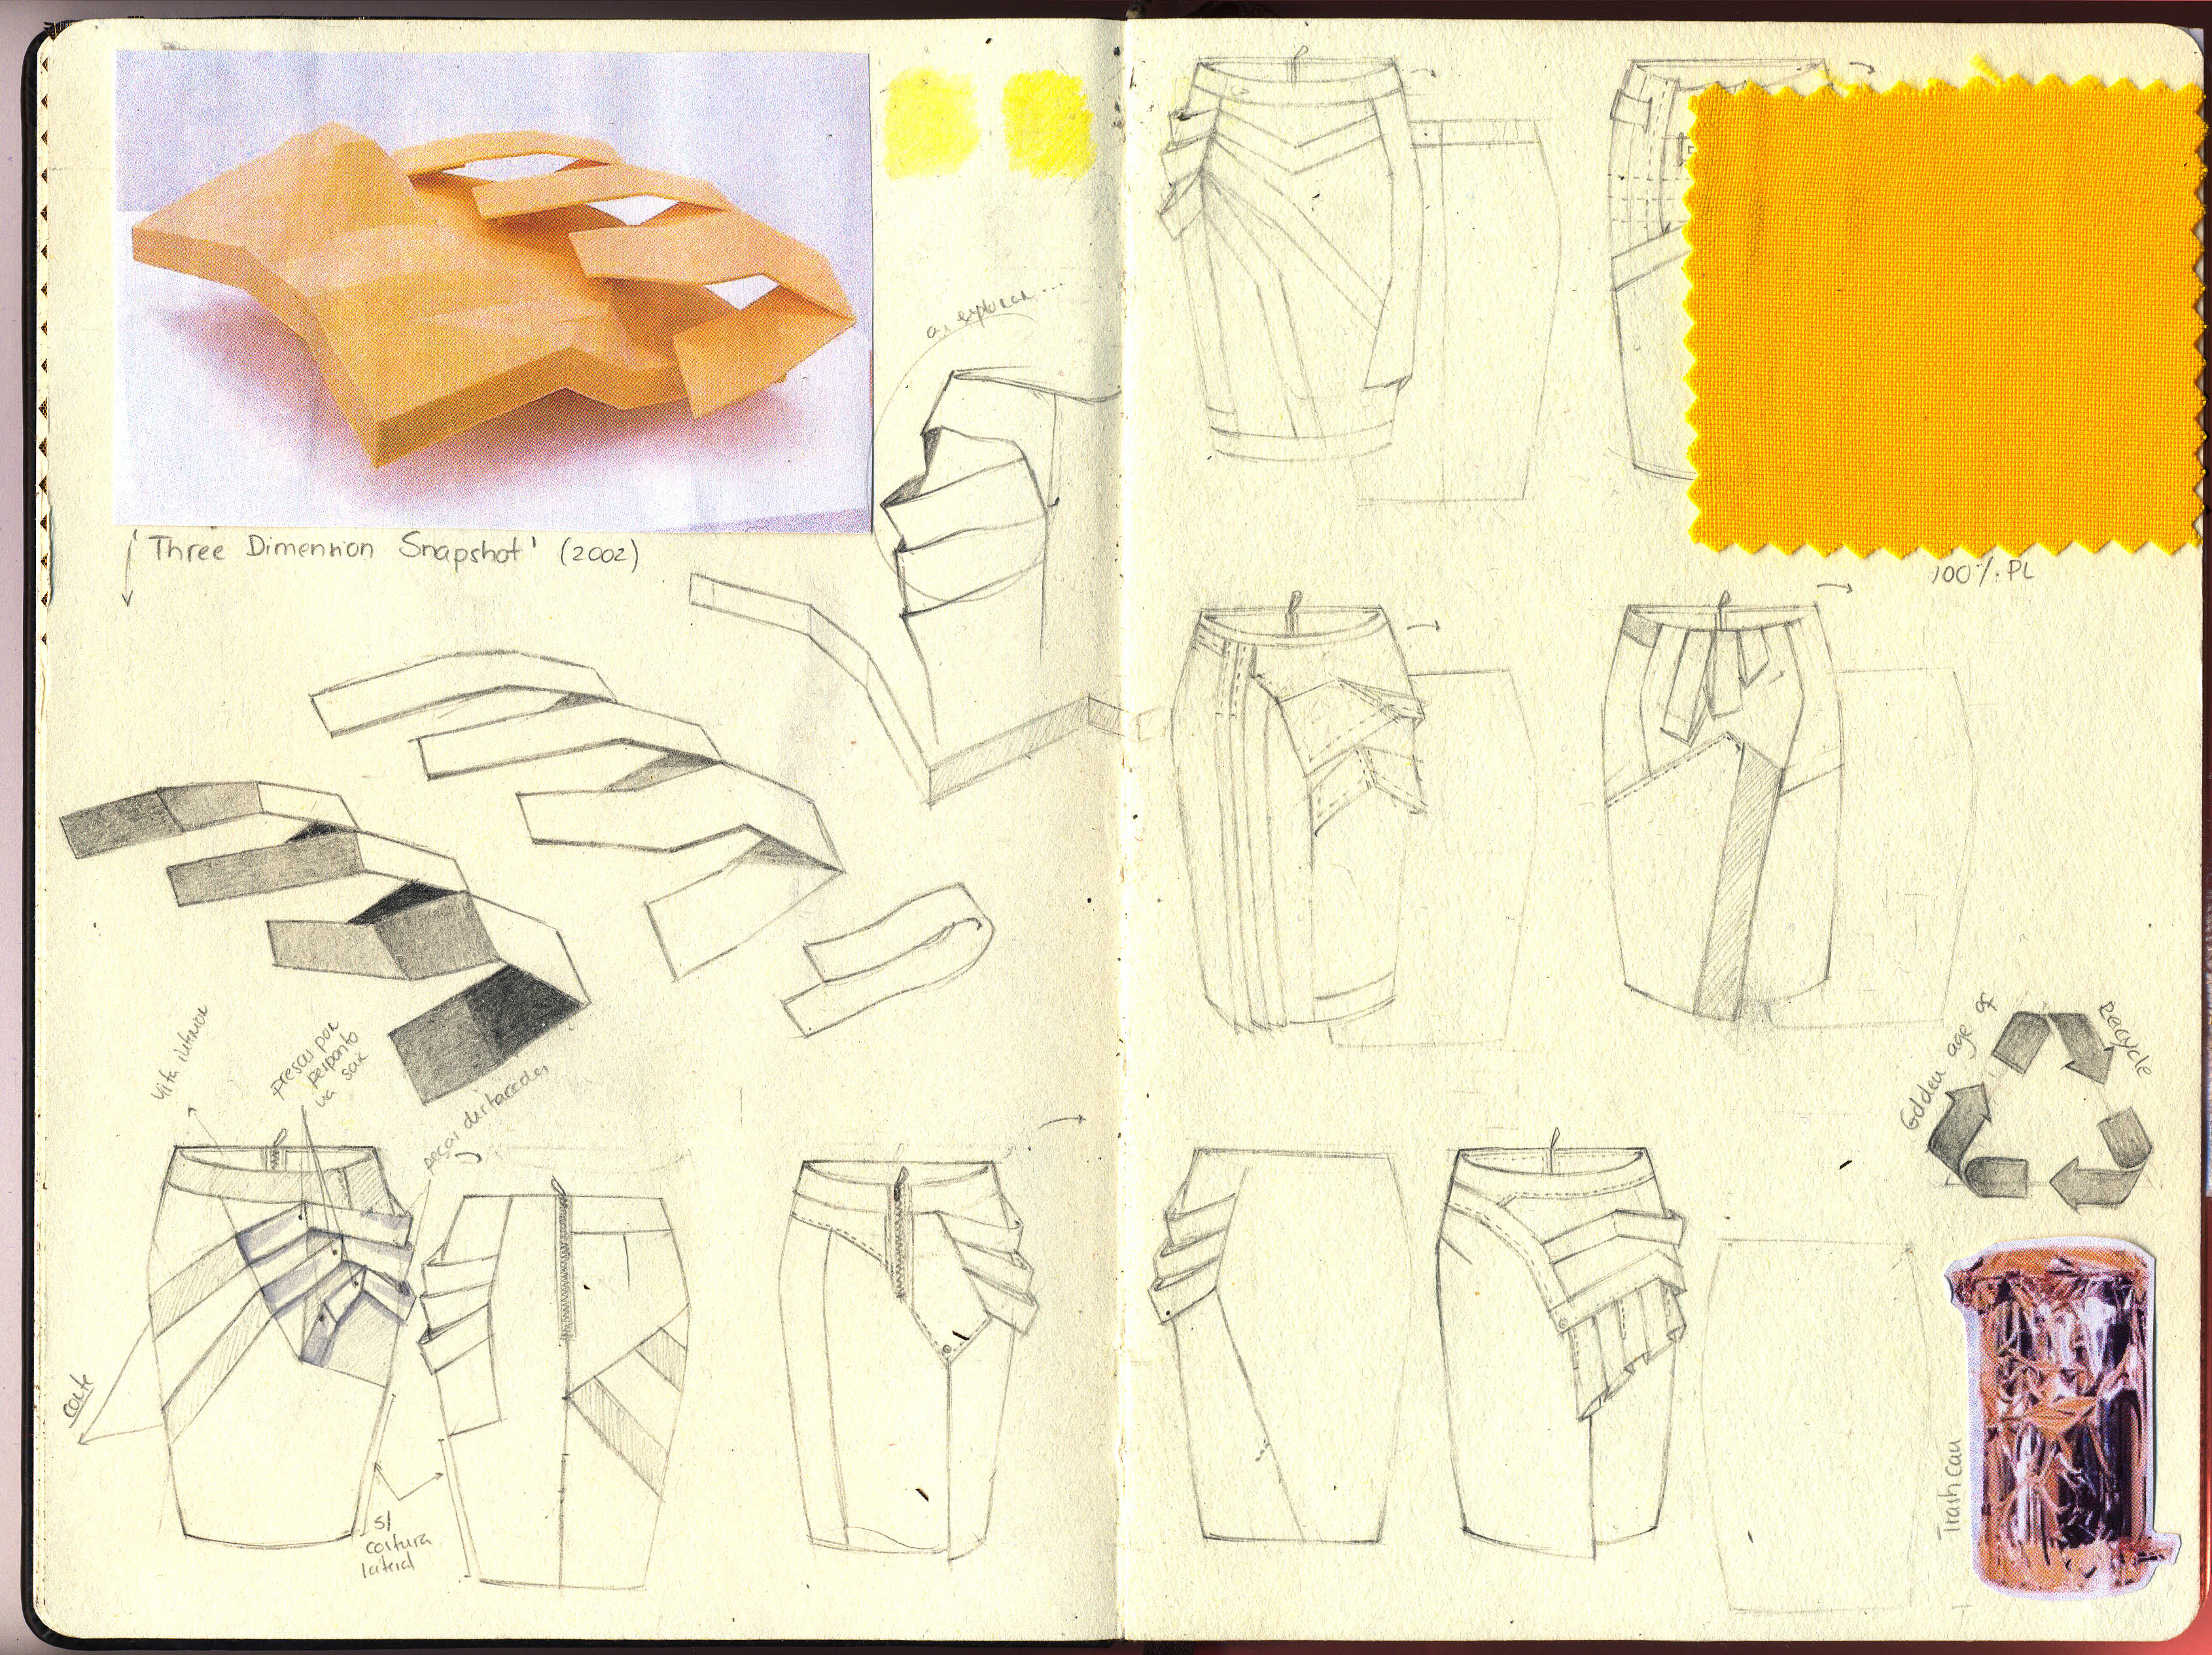 'Three Dimension Snapshot' (2002)
a explorar...
vista interior
presas por
pesponto
na saia
peças destacadas
corte
s/
costura
lateral
100%.PL
Golden age of
Recycle
Trash can